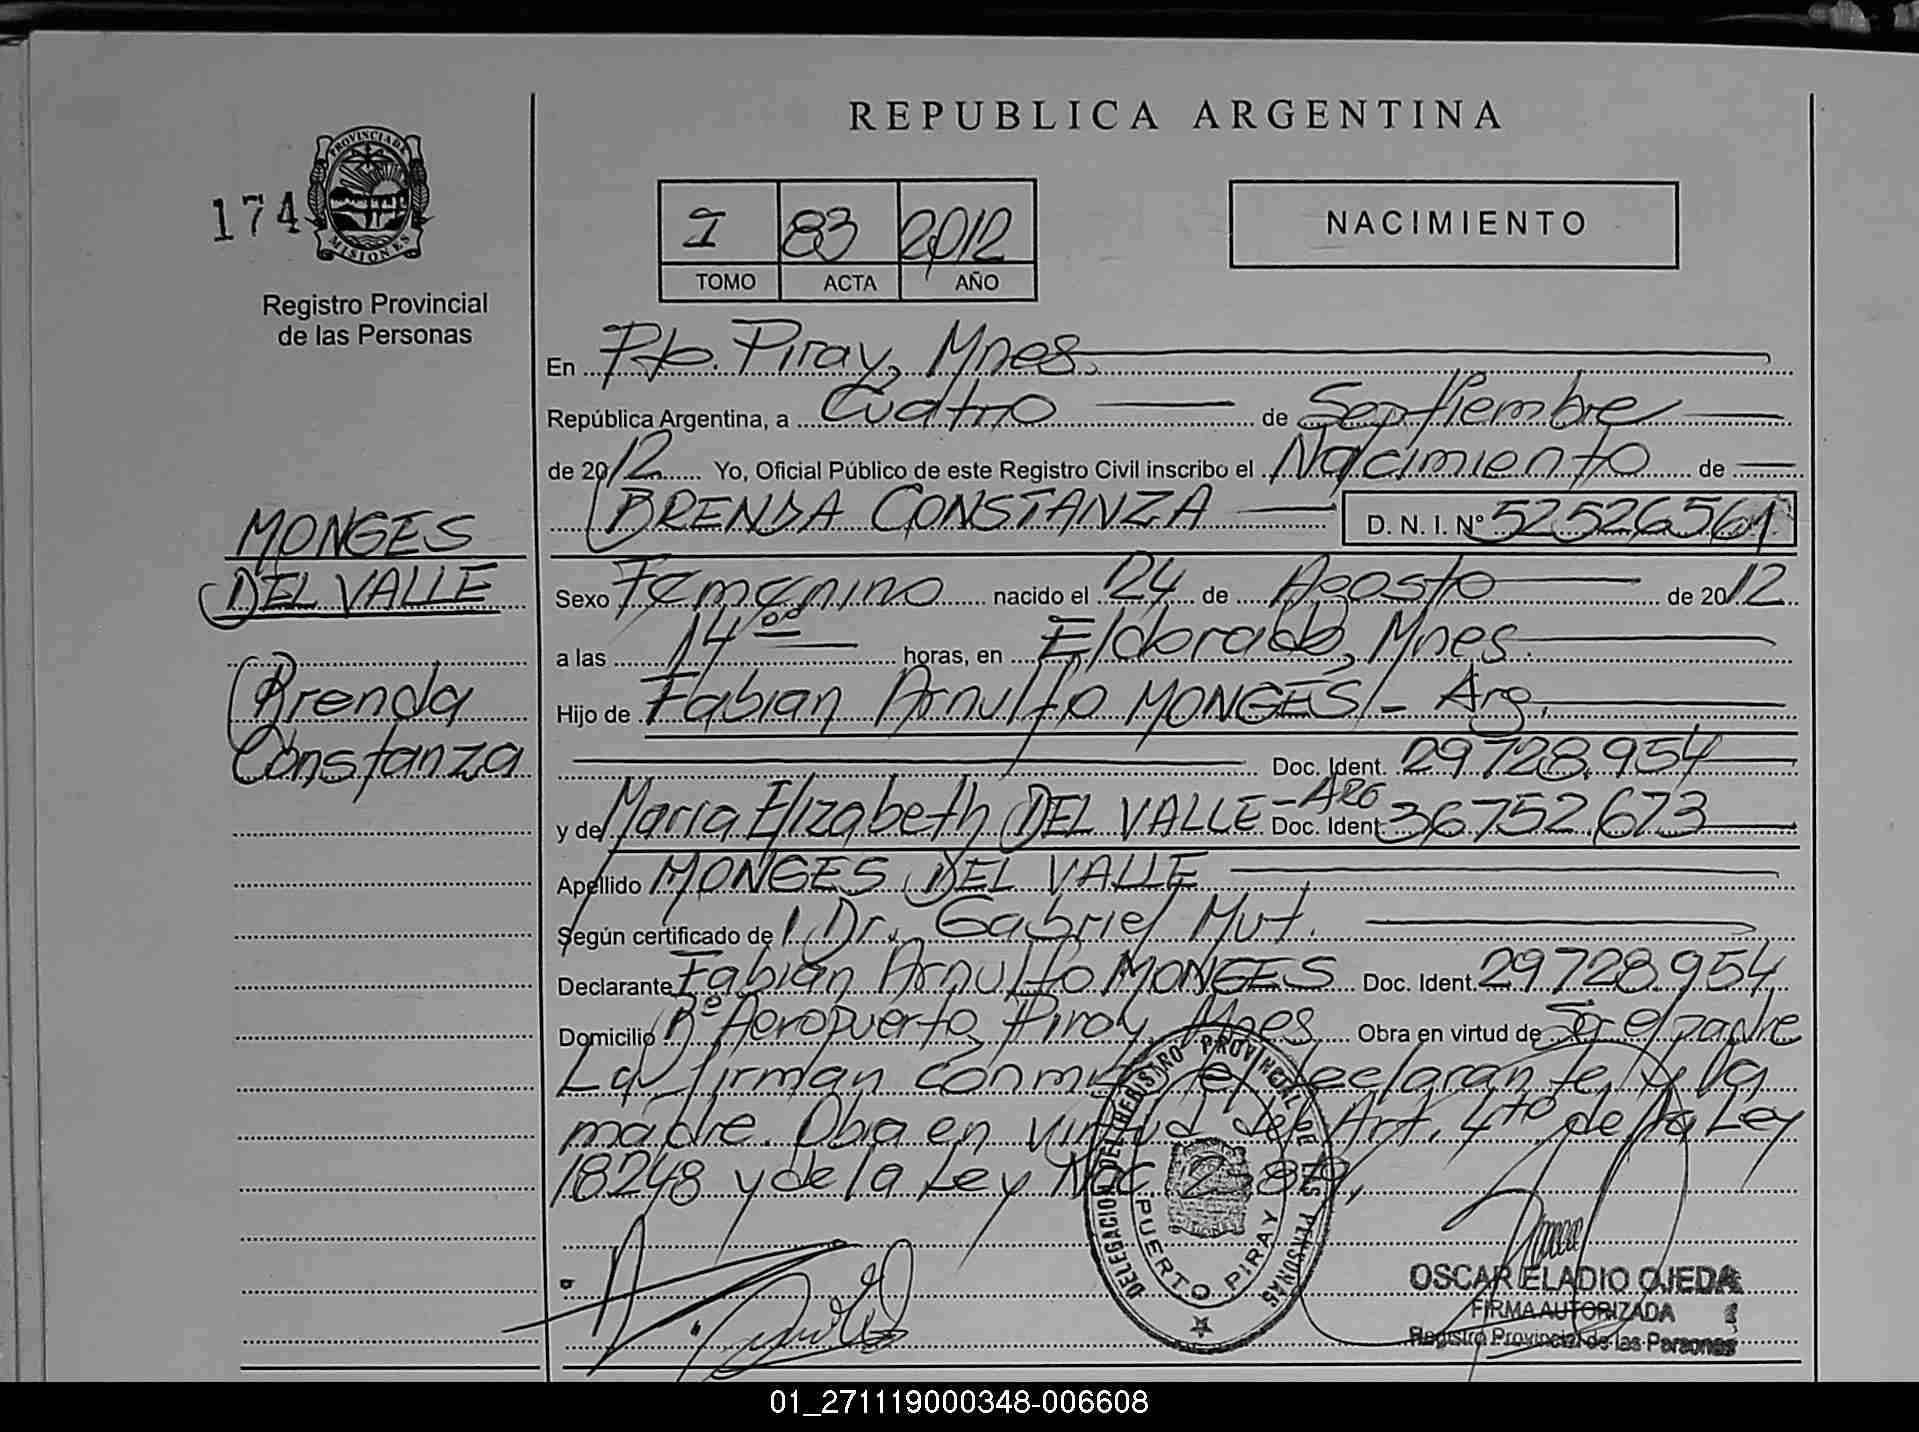 REPUBLICA ARGENTINA
PROVINCIA DE MISIONES
174
Registro Provincial
de las Personas
I 83 2012
TOMO ACTA AÑO
NACIMIENTO
En Pto. Piray, Mnes.
República Argentina, a Cuatro de Septiembre
de 2012 Yo, Oficial Público de este Registro Civil inscribo el Nacimiento de
BRENDA CONSTANZA D. N. I. N° 52526561
MONGES
DEL VALLE
Brenda
Constanza
Sexo Femenino nacido el 24 de Agosto de 2012
a las 14 oo horas, en Eldorado, Mnes.
Hijo de Fabian Arnulfo MONGES - Arg.
Doc. Ident. 29728.954
y de Maria Elizabeth DEL VALLE - ARG Doc. Ident. 36752.673
Apellido MONGES DEL VALLE
Según certificado de Dr. Gabriel Mut.
Declarante Fabian Arnulfo MONGES Doc. Ident. 29728.954
Domicilio B° Aeropuerto, Piray, Mnes. Obra en virtud de Ser el padre
La firman conmigo el declarante y la
madre. Obra en virtud del Art. 4to de la Ley
18248 y de la Ley Nac.
DELEGACION DEL REGISTRO PROVINCIAL DE LAS PERSONAS
PUERTO PIRAY
OSCAR ELADIO OJEDA
FIRMA AUTORIZADA
Registro Provincial de las Personas
01_271119000348-006608